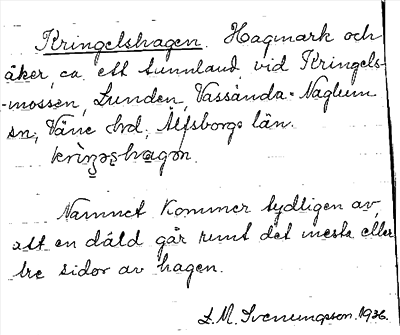 Kringelshagen. Hagmark och
åker, ca. ett tunnland, vid Kringels-
-mossen, Lunden, Vassända-Naglum
sn, Väne hrd, Älfsborgs län.
Namnet kommer tydligen av,
att en dåld går runt det mesta eller
tre sidor av hagen.
L. M. Svenungsson. 1936.